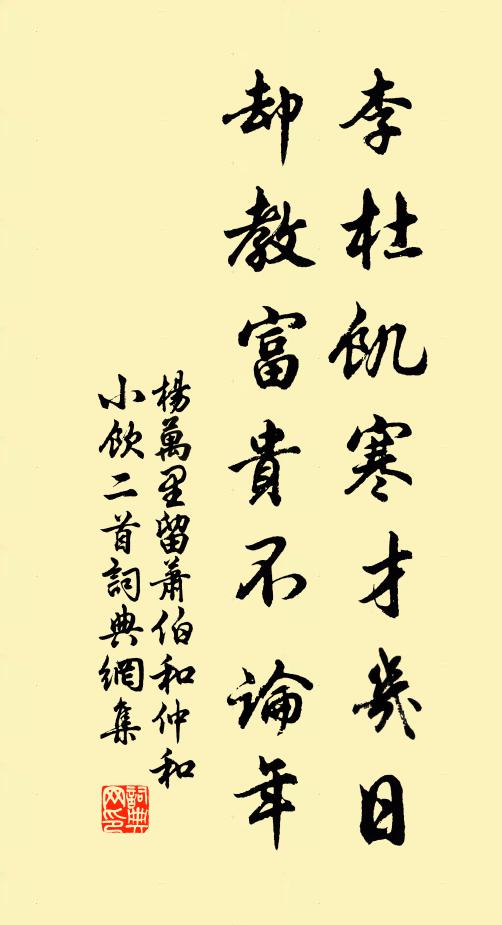 李杜飢寒才幾日
却教富貴不論年
楊萬里留蕭伯和仲和
小飲二首詞典網集
詞典
网印